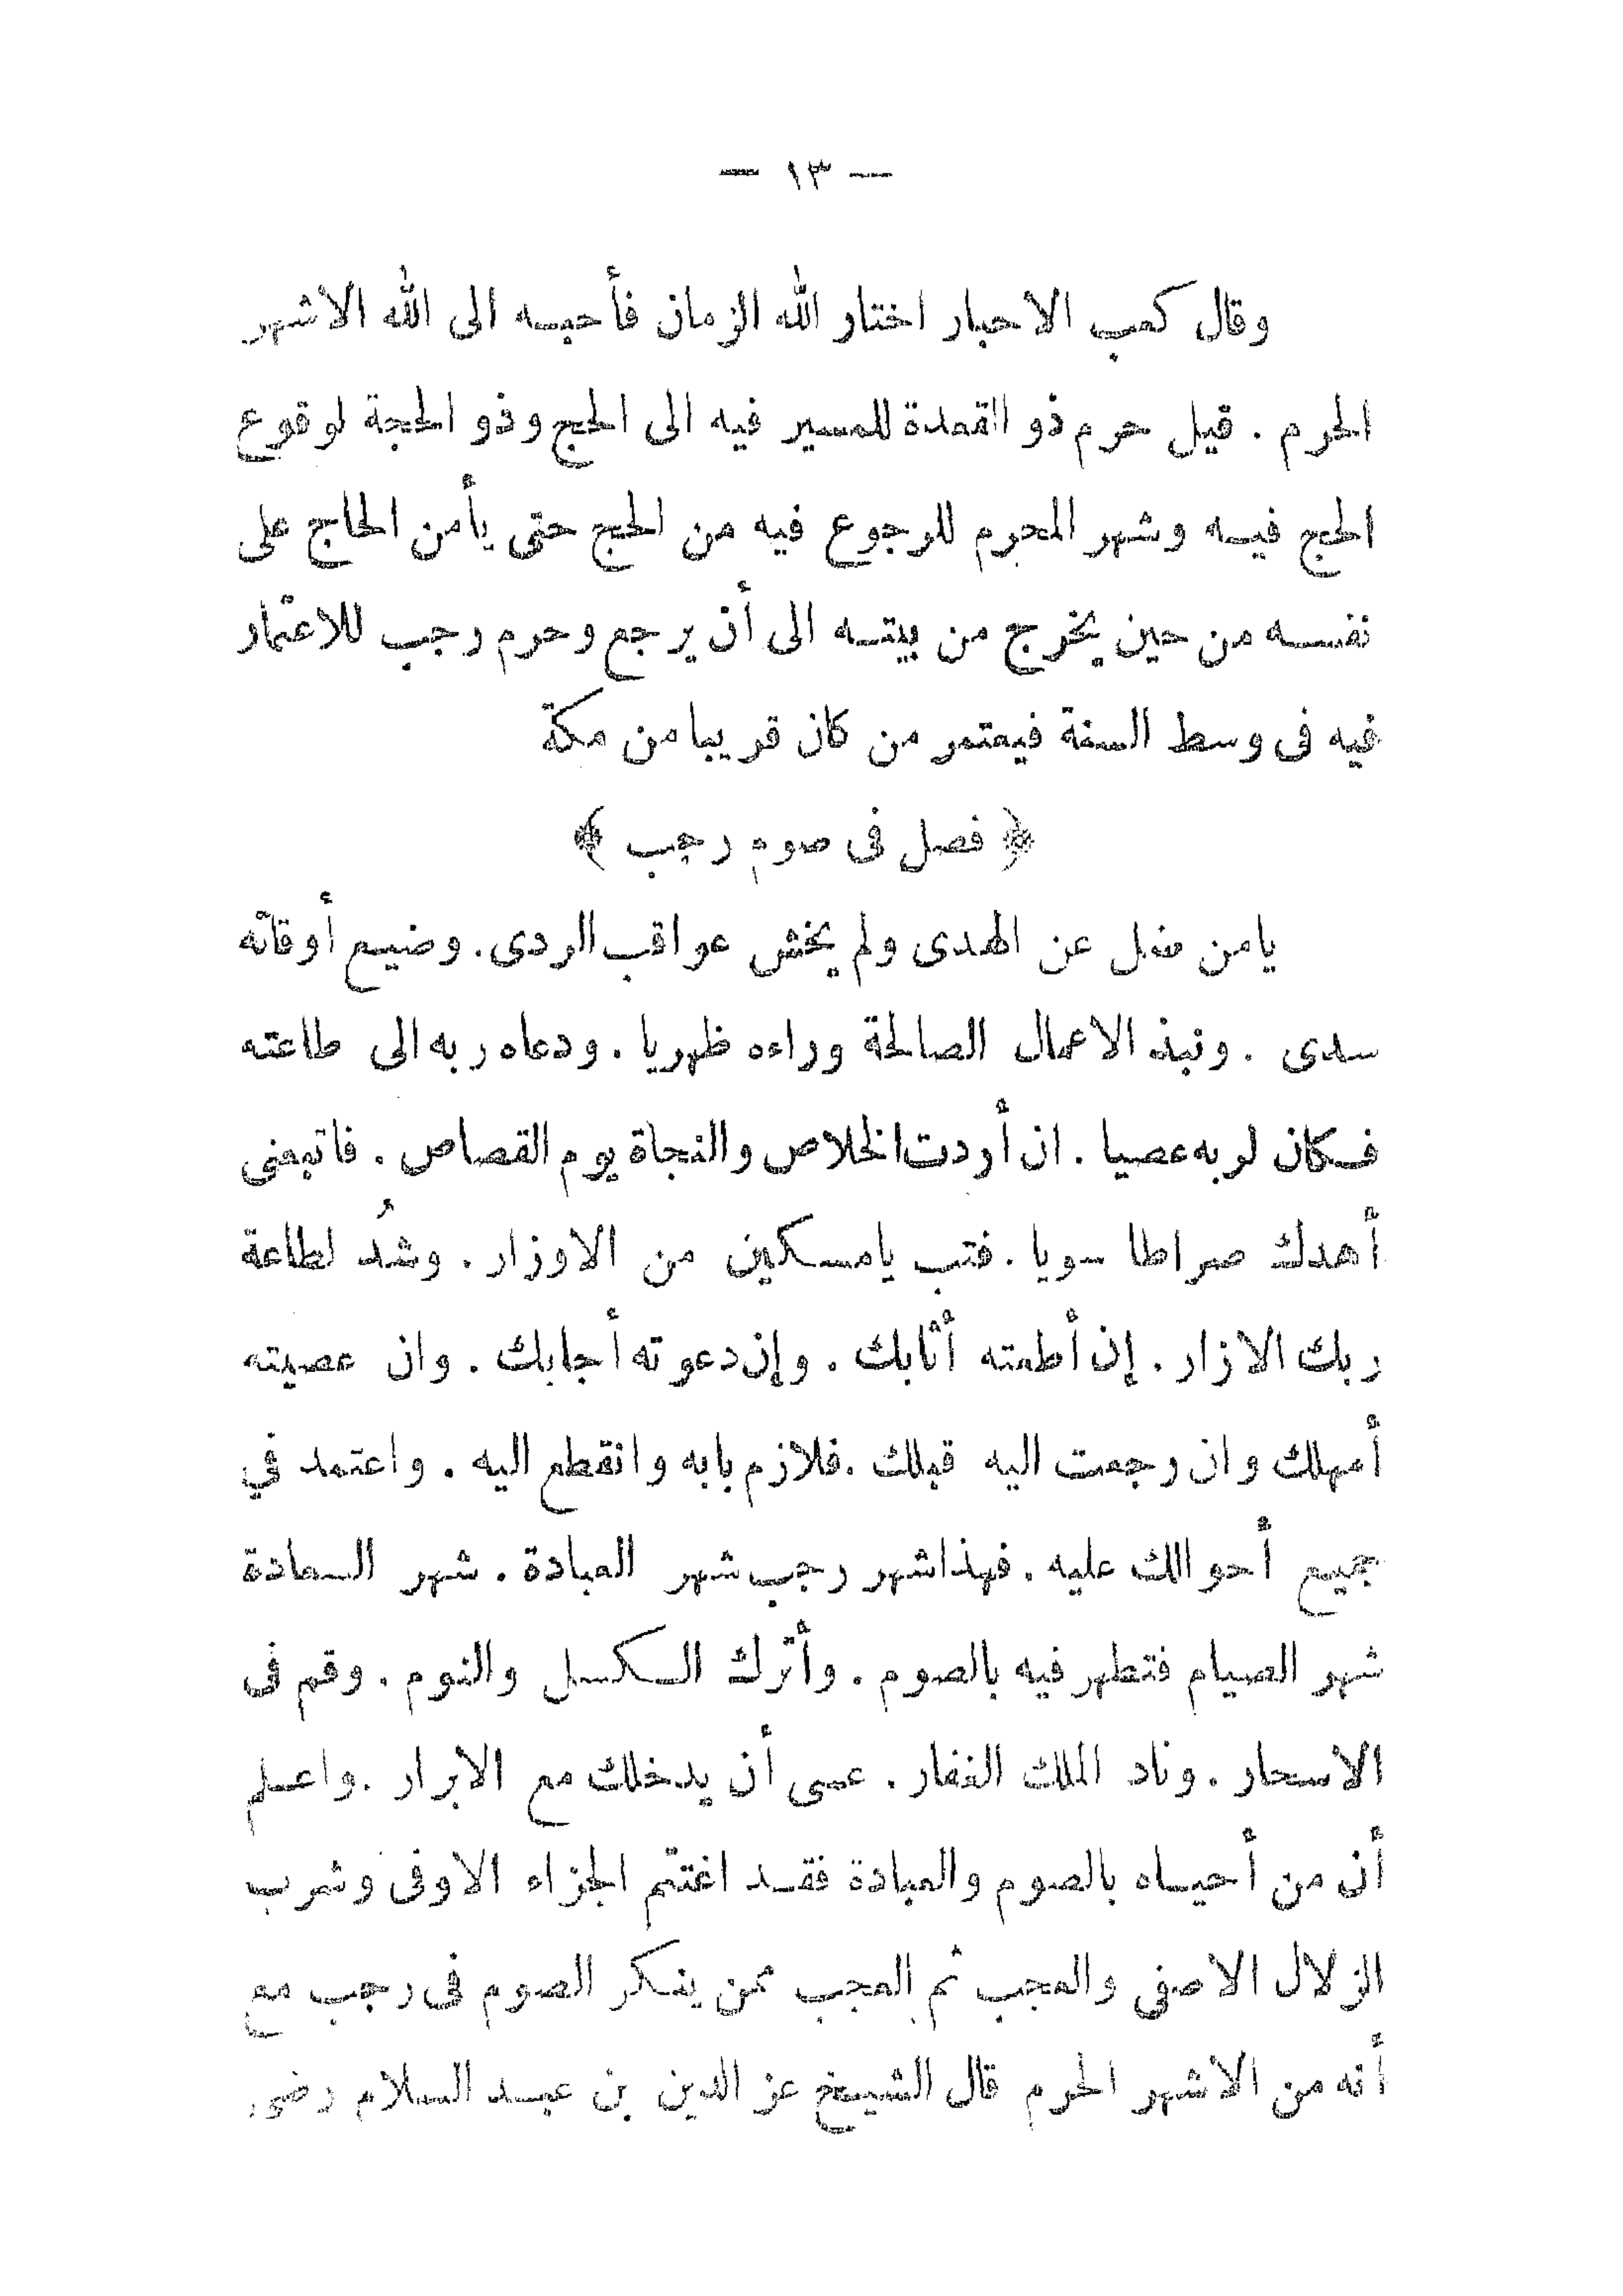 — ١٣ —
وقال كعب الاحبار اختار الله الزمان فأحبه الى الله الاشهر
الحرم . قيل حرم ذو القعدة للمسير فيه الى الحج وذو الحجة لوقوع
الحج فيه وشهر المحرم للرجوع فيه من الحج حتى يأمن الحاج على
نفسه من حين يخرج من بيته الى أن يرجع وحرم رجب للاعتمار
فيه فى وسط السنة فيعتمر من كان قريبا من مكة
﴿ فصل فى صوم رجب ﴾
يامن ضل عن الهدى ولم يخش عواقب الردى . وضيع أوقاته
سدى . ونبذ الاعمال الصالحة وراءه ظهريا . ودعاه ربه الى طاعته
فكان لربه عصيا . ان أردت الخلاص والنجاة يوم القصاص . فاتبعنى
أهدك صراطا سويا . فتب يامسكين من الاوزار . وشُد لطاعة
ربك الازار . إن أطعته أثابك . وإن دعوته أجابك . وان عصيته
أمهلك وان رجعت اليه قبلك . فلازم بابه وانقطع اليه . واعتمد في
جميع أحوالك عليه . فهذا شهر رجب شهر العبادة . شهر السعادة
شهر الصيام فتطهر فيه بالصوم . وأترك الكسل والنوم . وقم فى
الاسحار . وناد الملك الغفار . عسى أن يدخلك مع الابرار . واعلم
أن من أحياه بالصوم والعبادة فقد اغتنم الجزاء الاوفى وشرب
الزلال الاصفى والعجب ثم العجب ممن ينكر الصوم فى رجب مع
أنه من الاشهر الحرم قال الشيخ عز الدين بن عبد السلام رضى